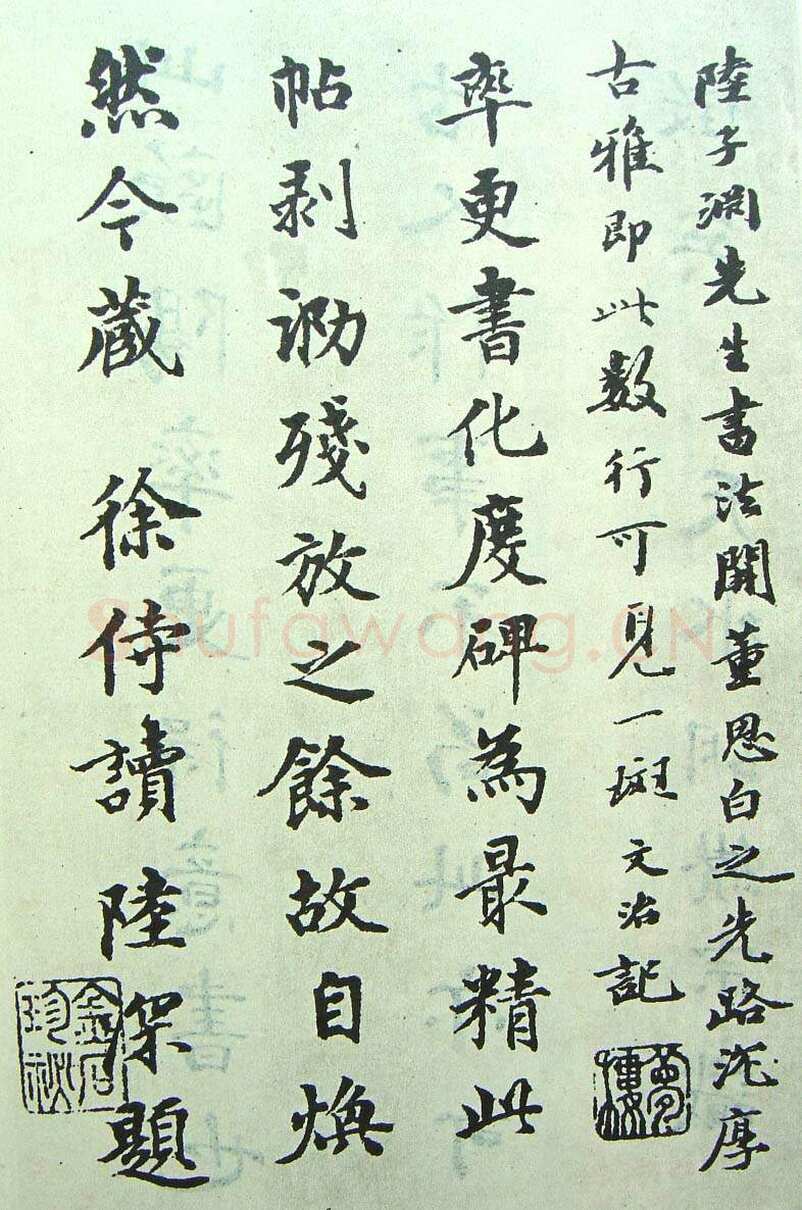 陸子淵先生書法開董思白之先路沉厚
古雅即此數行可見一斑文治記
率更書化度碑為最精此
帖剥泐殘放之餘故自煥
然今藏 徐侍讀陸深題
金石
珍祕
夢樓
Shufawang.CN